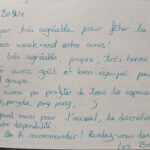 2024
très agréable pour fêter la
week-end entre amis!
agréable, propre, très bonne
avec goût et bien équipé pour
groupe.
avons pu profiter de tous les espaces
, pergola, ping pong...)
merci pour l'accueil, la discrétion
disponibilité.
A recommander! Rendez-vous dan
Les B